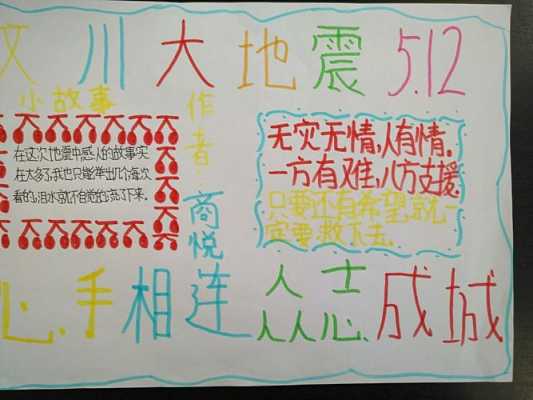 汶川大地震 5.12
小故事
在这次地震中感人的故事实
在太多了,我也只能举出几个每次
看的,泪水就不自觉的流了下来。
作者:商悦
无灾无情,人有情。
一方有难,八方支援。
只要还有希望,就一
定要救下去。
心、手相连 众志成城